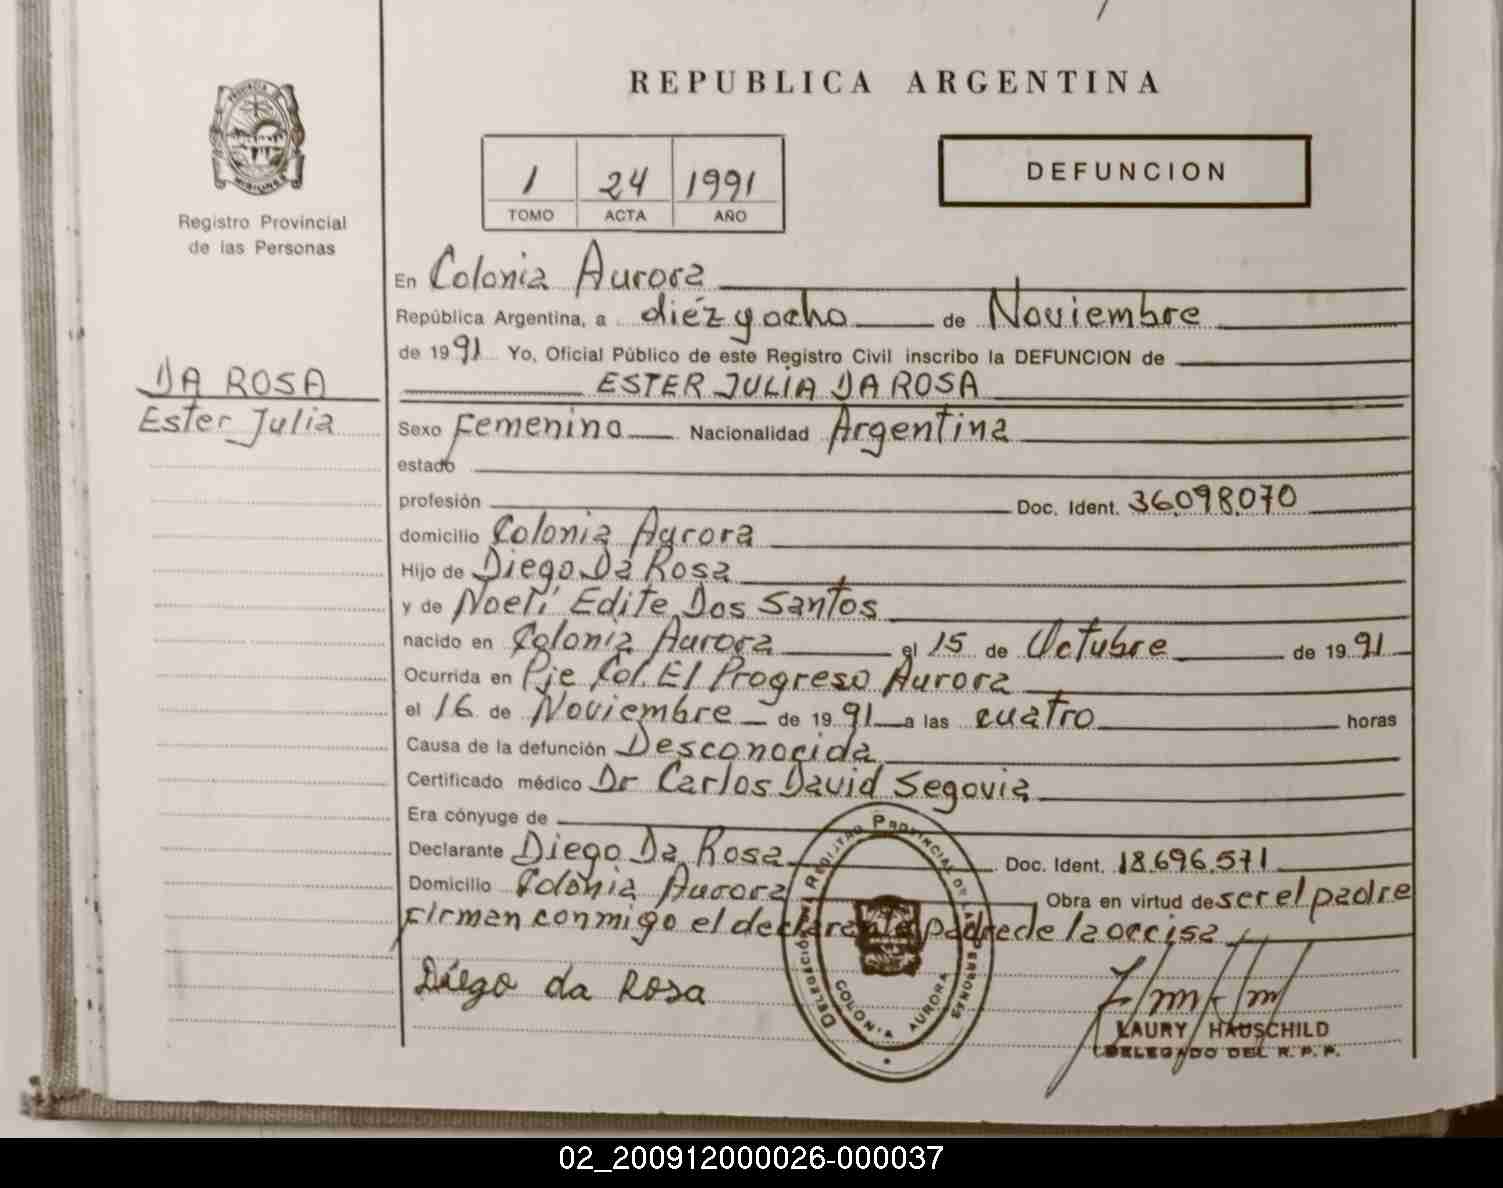 REPUBLICA ARGENTINA
PROVINCIA DE
MISIONES
Registro Provincial
de las Personas
1 24 1991
TOMO ACTA AÑO
DEFUNCION
En Colonia Aurora
República Argentina, a diéz y ocho de Noviembre
de 1991 Yo, Oficial Público de este Registro Civil inscribo la DEFUNCION de
DA ROSA
Ester Julia
ESTER JULIA DA ROSA
Sexo Femenino Nacionalidad Argentina
estado
profesión Doc. Ident. 36.098.070
domicilio Colonia Aurora
Hijo de Diego Da Rosa
y de Noelí Edite Dos Santos
nacido en Colonia Aurora el 15 de Octubre de 1991
Ocurrida en Pje Col. El Progreso Aurora
el 16 de Noviembre de 1991 a las cuatro horas
Causa de la defunción Desconocida
Certificado médico Dr Carlos David Segovia
Era cónyuge de
Declarante Diego Da Rosa Doc. Ident. 18.696.571
Domicilio Colonia Aurora Obra en virtud de ser el padre
Firman conmigo el declarante padre de la occisa
Diego da Rosa
DELEGACIÓN DEL REGISTRO PROVINCIAL DE LAS PERSONAS
COLONIA AURORA
LAURY HAUSCHILD
DELEGADO DEL R. P. P.
02_200912000026-000037